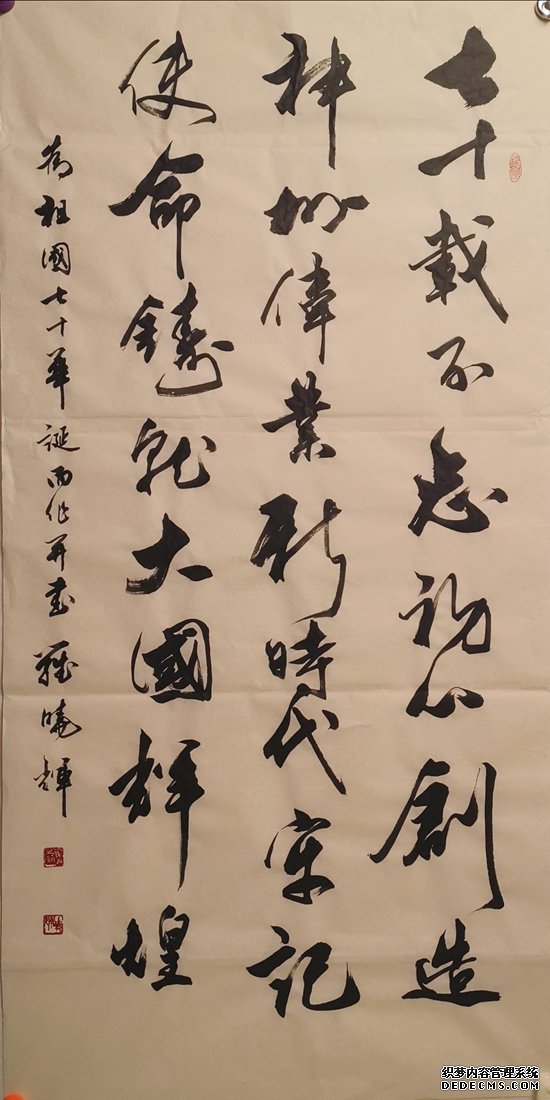 七十載不忘初心創造
神州偉業新時代牢記
使命鑄就大國輝煌
為祖國七十華誕而作并書 曉輝
织梦内容管理系统
DEDECMS.COM